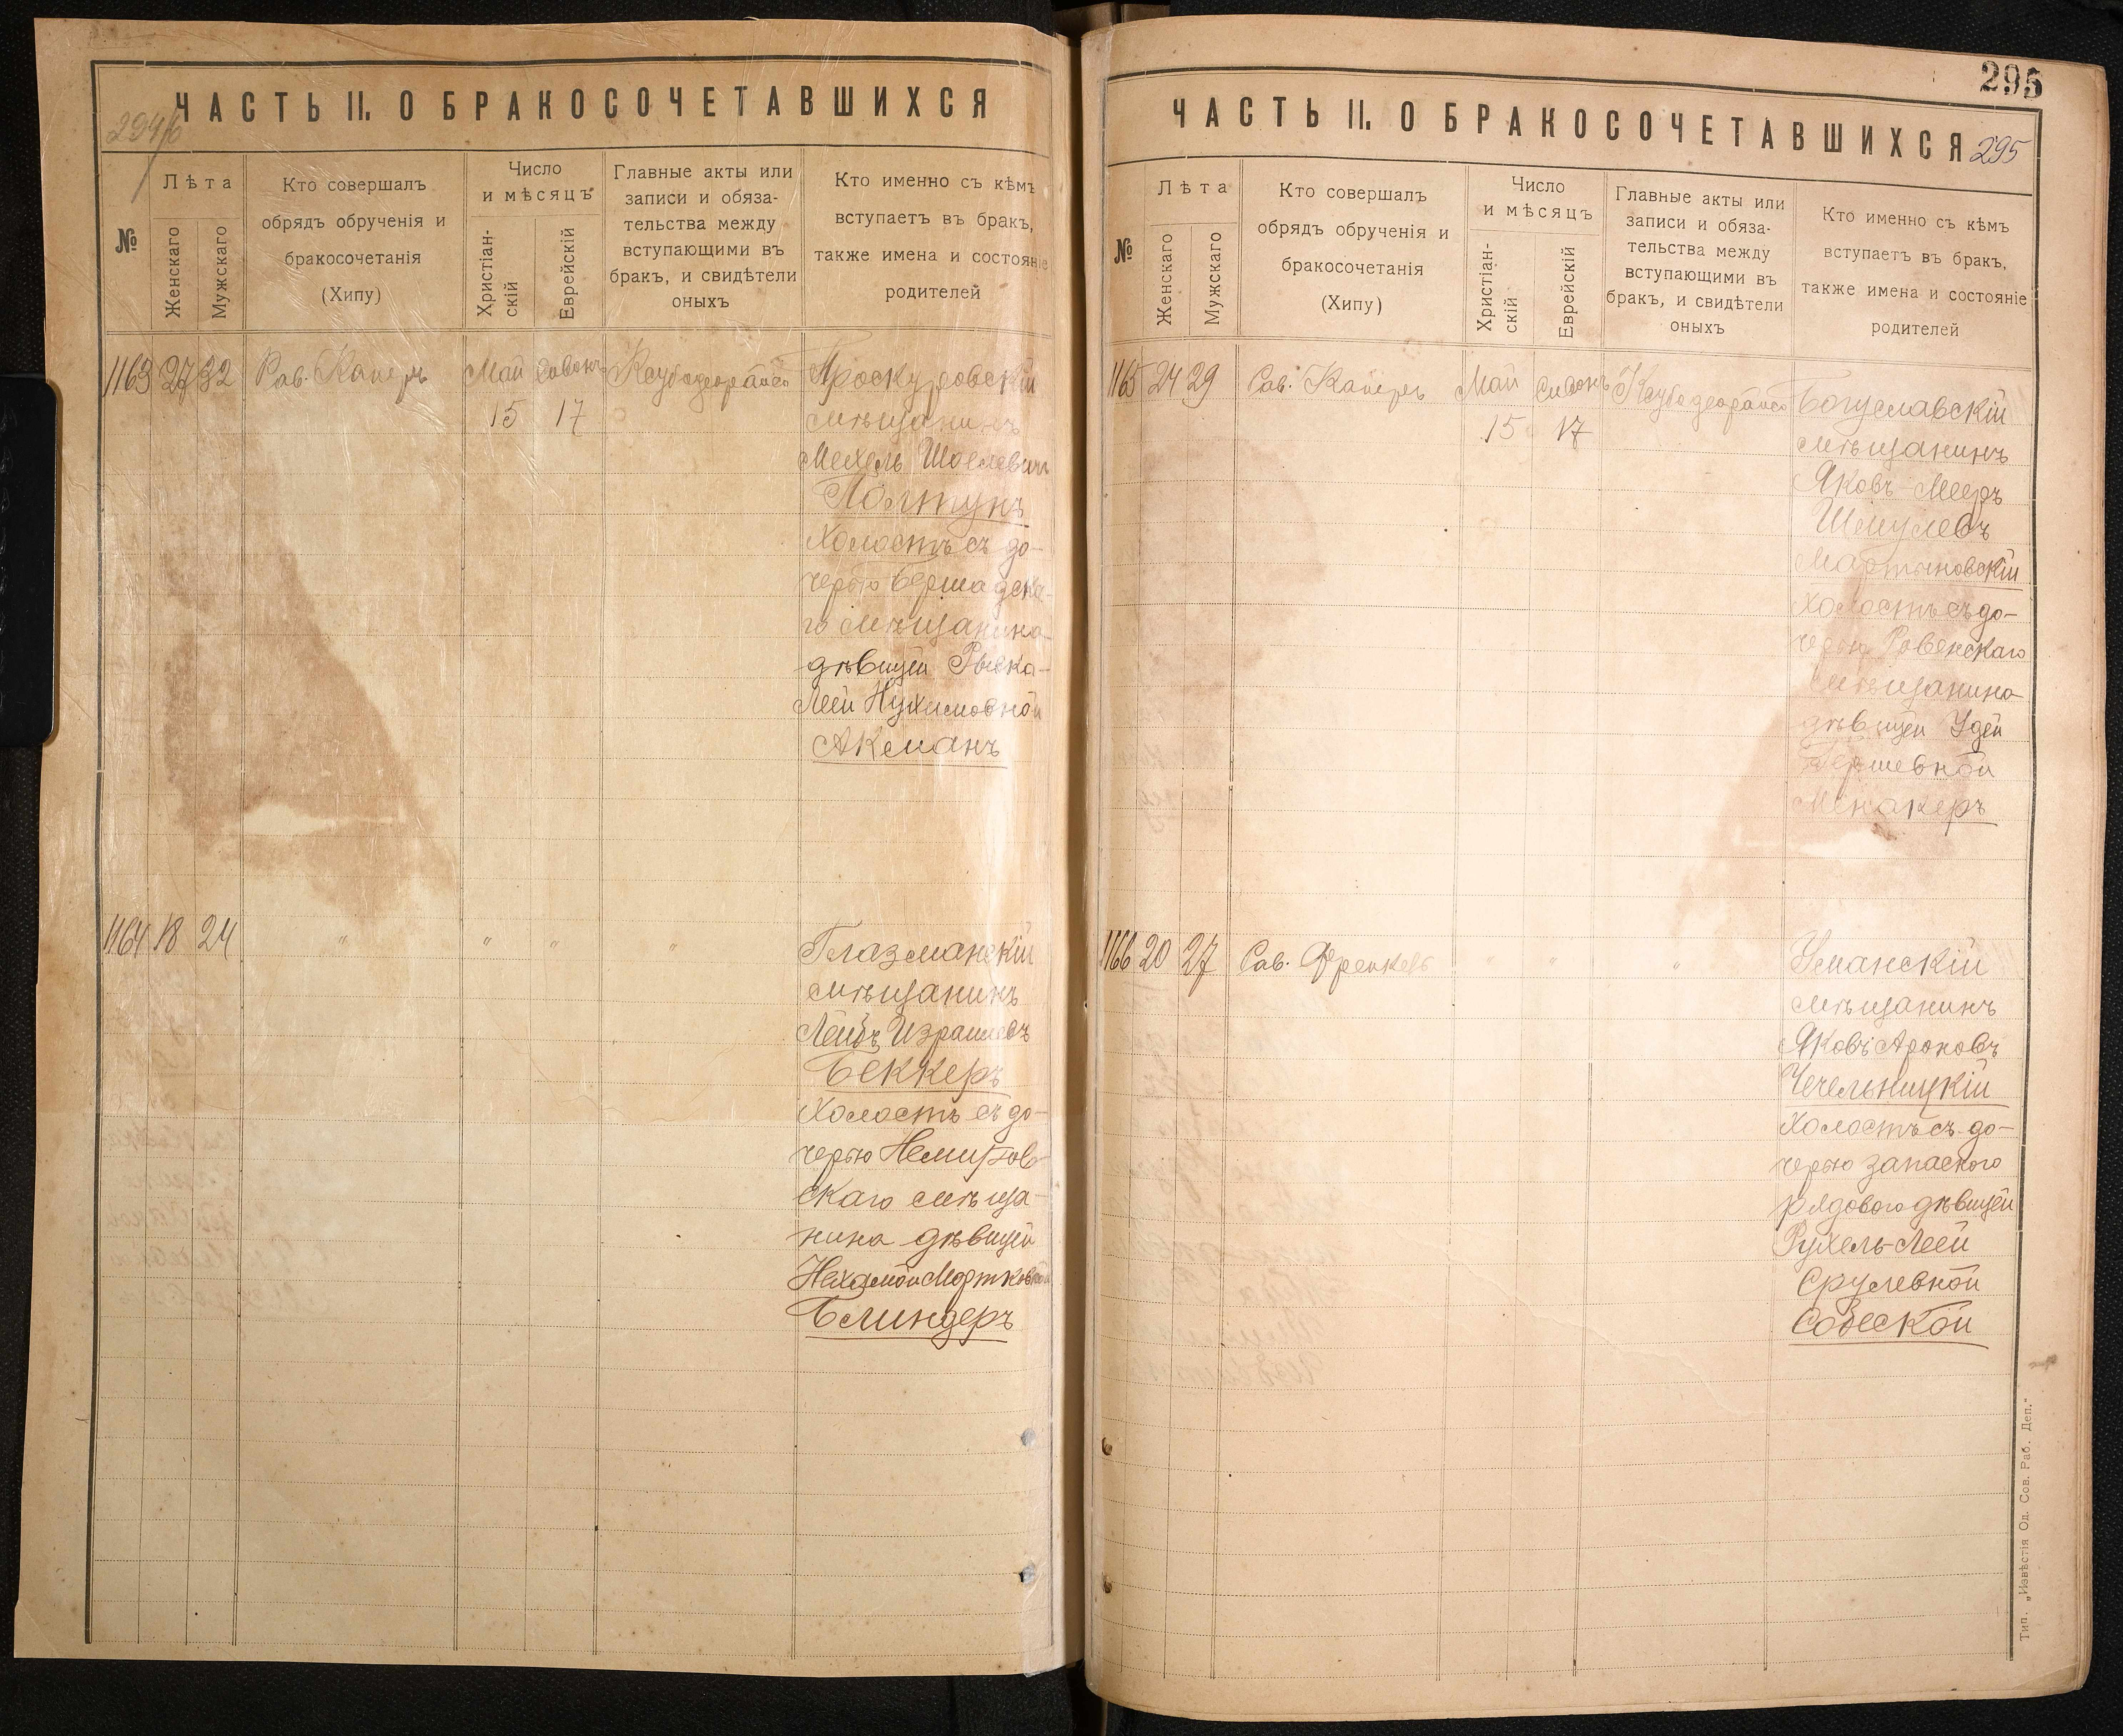 ЧАСТЬ II. О БРАКОСОЧЕТАВШИХСЯ
№
Лѣта
Женскаго
Мужскаго
Кто совершалъ
обрядъ обрученія и
бракосочетанія
(Хипу)
Число
и мѣсяцъ
Христіан-
скій
Еврейскій
Главные акты или
записи и обяза-
тельства между
вступающими въ
бракъ, и свидѣтели
оныхъ
Кто именно съ кѣмъ
вступаетъ въ бракъ,
также имена и состояніе
родителей
1163 27 32 Рав. Каперъ Май Сивонъ
15 17
Проскуровскій
мѣщанинъ
Мехель Шоелевич
Полтунъ
Холостъ съ до-
черью Бершадска-
го мѣщанина
дѣвицей Рыека-
Леей Нухимовной
Акманъ
1164 18 24 " " " "
Глазманскій
мѣщанинъ
Лейбъ Израилевъ
Беккеръ
Холостъ съ до-
черью Немиров-
скаго мѣща-
нина дѣвицей
Нехамой Мортковной
Блиндеръ
295
ЧАСТЬ II. О БРАКОСОЧЕТАВШИХСЯ 295
№
Лѣта
Женскаго
Мужскаго
Кто совершалъ
обрядъ обрученія и
бракосочетанія
(Хипу)
Число
и мѣсяцъ
Христіан-
скій
Еврейскій
Главные акты или
записи и обяза-
тельства между
вступающими въ
бракъ, и свидѣтели
оныхъ
Кто именно съ кѣмъ
вступаетъ въ бракъ,
также имена и состояніе
родителей
1165 24 29 Рав. Каперъ Май Сивонъ
15 17
Богуславскій
мѣщанинъ
Яковъ-Мееръ
Шмулевъ
Мартыновскій
Холостъ съ до-
черью Ровенскаго
мѣщанина
дѣвицей Удей
Гершевной
Менакеръ
1166 20 27 Рав. Френкель " " "
Уманскій
мѣщанинъ
Яковъ Ароновъ
Чечельницкій
Холостъ съ до-
черью запасного
рядового дѣвицей
Рухель-Леей
Срулевной
Собеской
Тип. „Извѣстія Од. Сов. Раб. Деп."